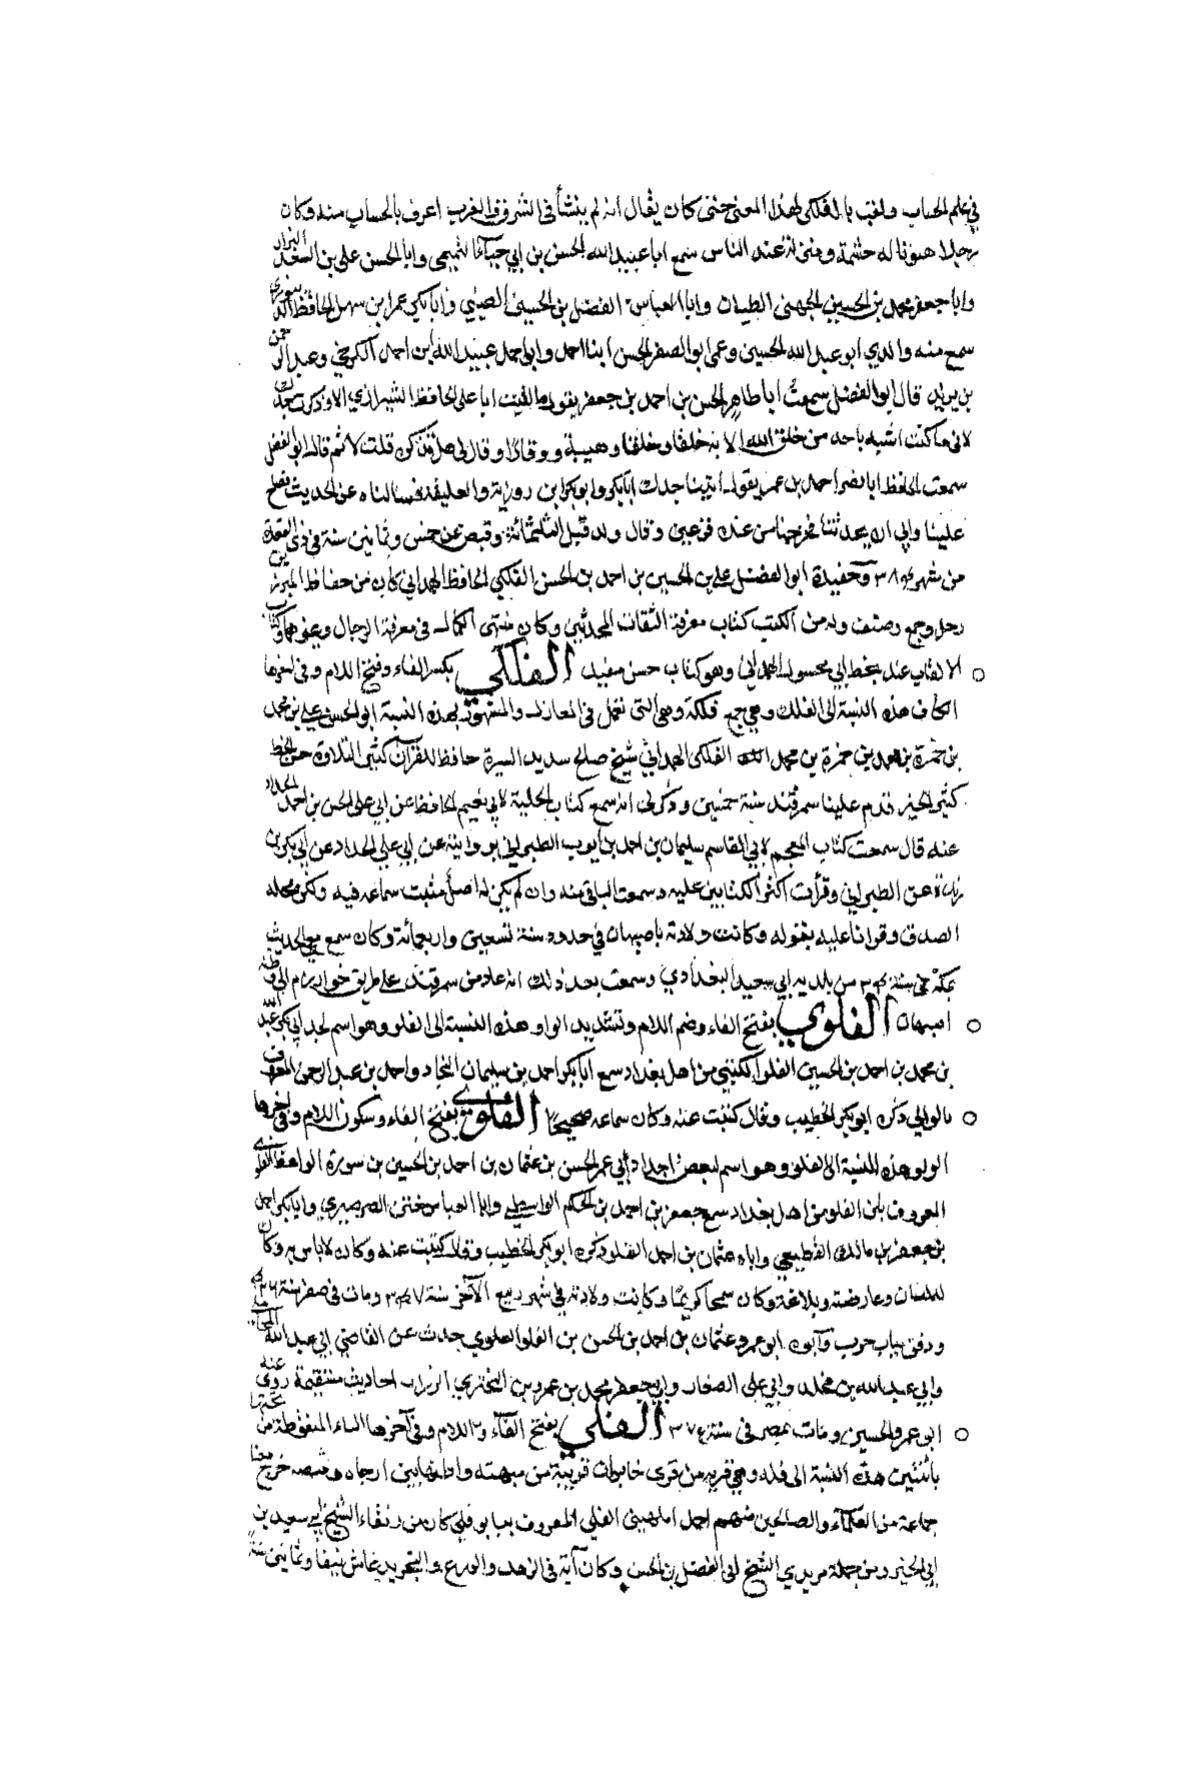 في علم الحساب ولقب بالفلكى لهذا المعنى حتى كان يقال انه لم ينشأ فى الشرق والغرب اعرف بالحساب منه وكان
رجلا هيوبا له حشمة ومنزلة عند الناس سمع ابا عبيد الله الحسن بن ابي التميمى وابا الحسن على بن السعد البزار
وابا جعفر محمد بن الحسين الجهنى الطيان وابا العباس الفضل بن الحسين وابا بكر عمر ابن سهل الحافظ الدينورى
سمع منه والدي ابو عبد الله الحسين وعمى ابو الصقر الحسن ابنا احمد وابو احمد عبيد الله ابن احمد الكرجي وعبد الرحمن
بن يزيد قال ابو الفضل سمعت ابا طاهر الحسن بن احمد بن جعفر يقول ما لقيت ابا على الحافظ الشيرازي الا وذكرت جدك
لانى ما كنت اشبه باحد من خلق الله الا به خلقا وخلقا وهيبة ووقارا وقال لى هل تذكره قلت لا ثم قال ابو الفضل
سمعت الحافظ ابا نصر احمد بن عمر يقول اتينا جدك ابا بكر وابو بكر ابن روزبة والعليقة فسالناه عن الحديث فصلح
علينا وابى ان يحدثنا فخرجنا من عنده وقال ولد قبل الثلثمائة وقبض عن خمس وثمانين سنة فى ذى القعدة
من شهور ٣٨٤ وحفيده ابو الفضل على بن الحسين بن احمد بن الحسن الفلكي الحافظ الهمداني كان من حفاظ المبرزين
رحل وجمع وصنف وله من الكتب كتاب معرفة الثقات المحدثين وكان منتهى الكمال فى معرفة الرجال وغيرهما وكتاب
الالقاب عند بخط ابي الهمداني وهو كتاب حسن مفيد الفلكي بكسر الفاء وفتح اللام وفى اخرها
الكاف هذه النسبة الى الفلك وهى جمع فلكة وهى التى تعمل فى المغازل والمشهور بهذه النسبة ابو الحسن على بن محمد
بن حمزة بن محمد بن حمزة بن محمد الفلكى الهمداني شيخ صالح سديد السيرة حافظ للقرآن كثير التلاوة حسن الخط
كثير الخير قدم علينا سمرقند سنة خمسين وذكر لى انه سمع كتاب الحلية لابي نعيم الحافظ عن ابي على الحسن بن احمد الحداد
عنه قال سمعت كتاب المعجم لابي القاسم سليمان بن احمد بن ايوب الطبراني بروايته عن ابي على الحداد عن ابى بكر بن
ريذة عن الطبراني وقرأت اكثر الكتابين عليه وسمعت الباقى منه وان لم يكن له اصل مثبت سماعه فيه ولكن محله
الصدق وقرانا عليه بقوله وكانت ولادته باصبهان في حدود سنة تسعين واربعمائة وكان سمع معى الحديث
بمكة فى سنة من بلديه ابي سعيد البغدادي وسمعت بعد ذلك انه عاد من سمرقند على طريق خوارزم الى وطنه
اصبهان الفلوي بفتح الفاء وضم اللام وتشديد الواو هذه النسبة الى الفلو وهو اسم لجد ابي بكر عبد الله
بن محمد بن احمد بن الحسين الفلو الكتبي من اهل بغداد سمع ابا بكر احمد بن سليمان النجاد واحمد بن عبد الرحمن المعروف
بالوالي ذكره ابو بكر الخطيب وقال كتبت عنه وكان سماعه صحيحا الفلوى بفتح الفاء وسكون اللام وفى اخرها
الواو هذه النسبة الى الفلو وهو اسم لبعض اجداد ابي عمر الحسن بن عثمان بن احمد بن الحسين بن سورة الواعظ الفلوى
المعروف بابن الفلو من اهل بغداد سمع جعفر بن احمد بن الحكم الواسطى وابا العباس ختن الصرصري وابا بكر احمد
بن جعفر بن مالك القطيعي واباه عثمان بن احمد الفلو ذكره ابو بكر الخطيب وقال كتبت عنه وكان لا باس به وكان
له لسان وعارضة وبلاغة وكان سمحا كريما وكانت ولادته في شهر ربيع الآخر سنة ٣٤٧ ومات فى صفر سنة
ودفن بباب حرب وابوه ابو عمرو عثمان بن احمد بن الحسن بن الفلو الفلوي حدث عن القاضي ابي عبد الله المحاملي
وابي عبد الله بن مخلد وابي على الصفار وابي جعفر محمد بن عمرو بن البختري الرزاز احاديث مستقيمة روى عنه
ابو عمر والحسين ومات بمصر فى سنة ٣٧٤ الفلي بفتح الفاء واللام وفى آخرها الياء المنقوطة من تحتها
باثنتين هذه النسبة الى فله وهى قرية من قرى خابران قريبة من ميهنة خرج منها
جماعة من العلماء والصالحين منهم احمد الميهنى الفلي المعروف ببابو فلي كان من رفقاء الشيخ ابي سعيد بن
ابي الخير ومن جملة مريدي الشيخ ابى الفضل بن الحسن وكان آية فى الزهد والورع والتجريد عاش نيفا وثمانين سنة